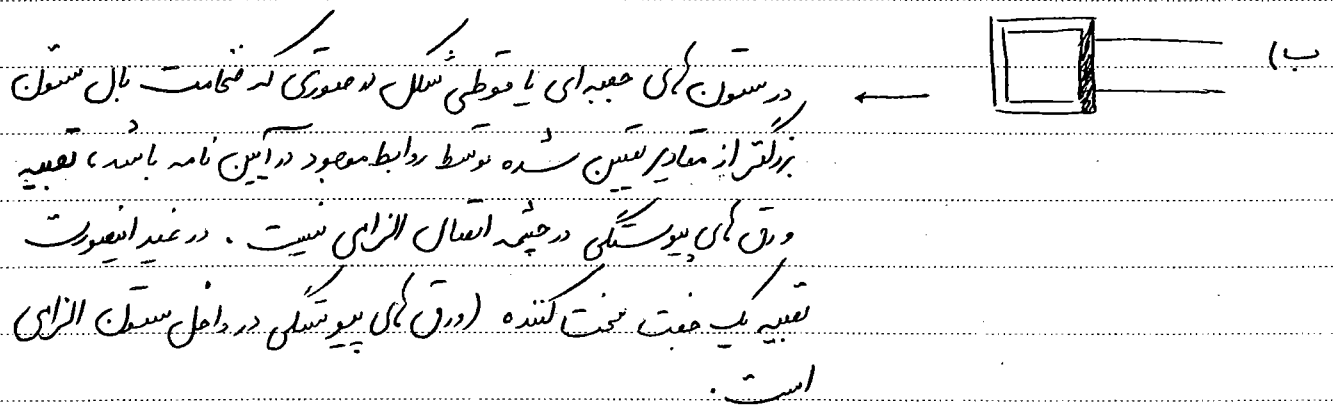 ب)
در ستون های جعبه ای یا قوطی شکل در صورتی که ضخامت بال ستون
بزرگتر از مقادیر تعیین شده توسط روابط موجود در آیین نامه باشد، تعبیه
ورق های پیوستگی در چشمه اتصال الزامی نیست. در غیر اینصورت
تعبیه یک جفت سخت کننده (ورق های پیوستگی در داخل ستون الزامی
است.